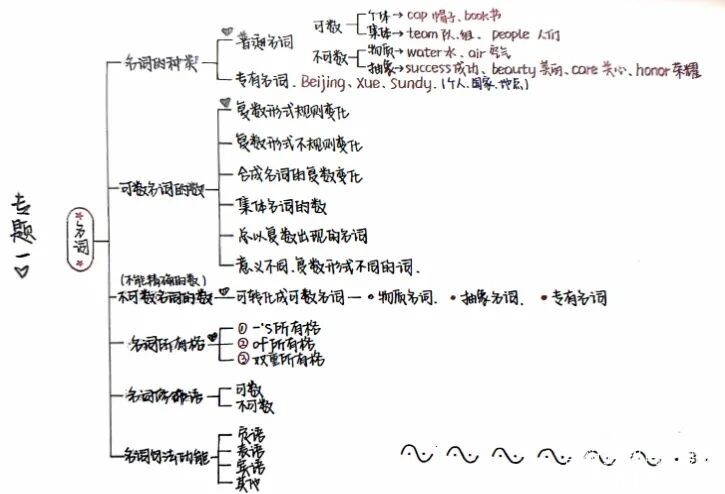 专题一
名词
名词的种类
普通名词
可数
个体→cap 帽子、book书
集体→team 队、组、people 人们
不可数
物质→water水、air 空气
抽象→success成功、beauty 美丽、care 关心、honor荣耀
专有名词、Beijing、Xue、Sundy、(个人、国家、地名)
可数名词的数
复数形式规则变化
复数形式不规则变化
合成名词的复数变化
集体名词的数
总以复数出现的名词
意义不同、复数形式不同的词、
(不能精确的数)
不可数名词的数
可转化成可数名词—•物质名词、•抽象名词、•专有名词
名词所有格
①-'s所有格
②of所有格
③双重所有格
名词修饰语
可数
不可数
名词句法功能
主语
表语
宾语
其他